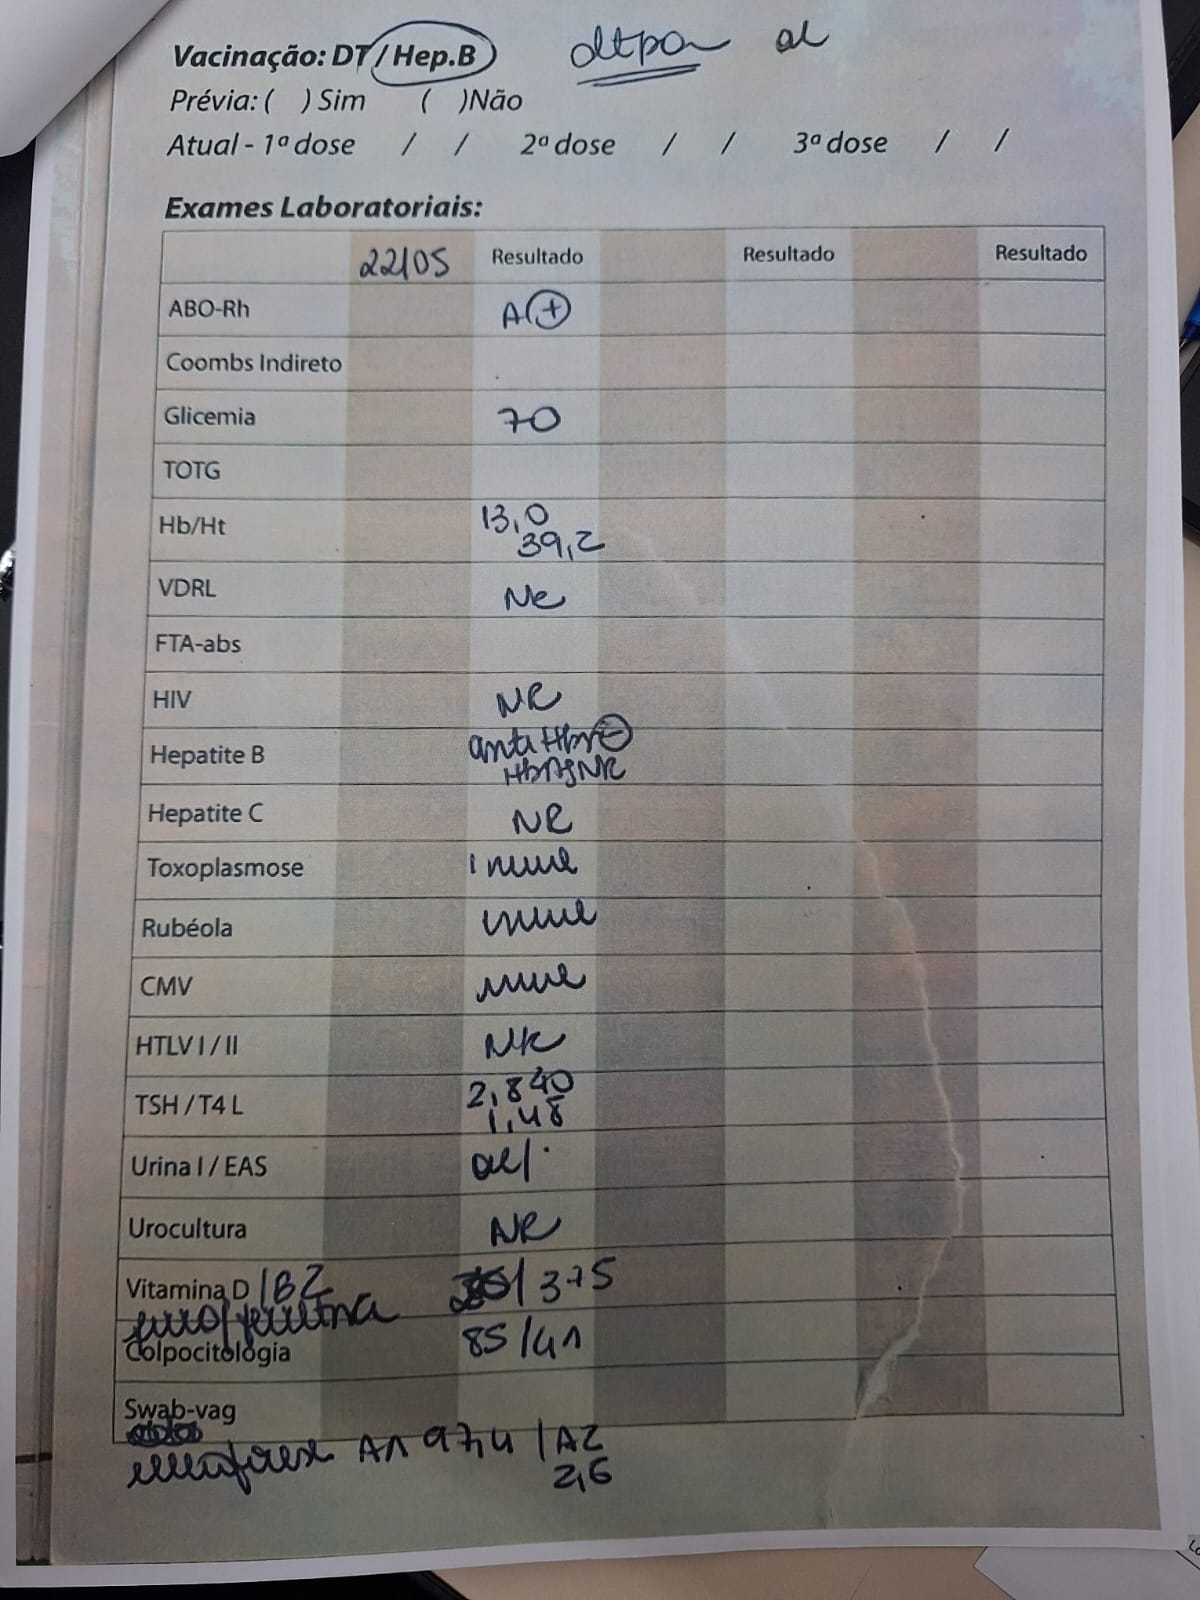 Vacinação: DT / Hep.B dtpa al
Prévia: ( ) Sim ( ) Não
Atual - 1ª dose / / 2ª dose / / 3ª dose / /
Exames Laboratoriais:
22/05 Resultado Resultado Resultado
ABO-Rh A(+)
Coombs Indireto
Glicemia 70
TOTG
Hb/Ht 13,0
39,2
VDRL
FTA-abs
HIV NR
Hepatite B anti Hbs (-)
HbAg NR
Hepatite C NR
Toxoplasmose imune
Rubéola imune
CMV imune
HTLV I / II NR
TSH / T4 L 2,840
1,48
Urina I / EAS
Urocultura NR
Vitamina D /B2 /375
ferro/ferritina 85 /41
Colpocitologia
Swab-vag
A1 97,4 /A2
2,6